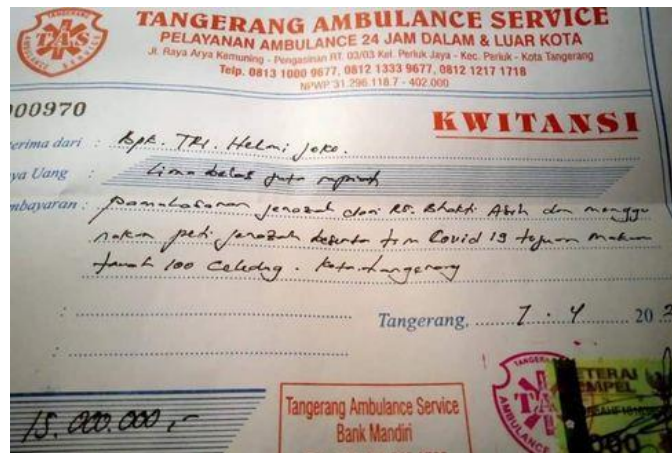 TANGERANG AMBULANCE SERVICE
PELAYANAN AMBULANCE 24 JAM DALAM & LUAR KOTA
Jl. Raya Arya Kemuning - Pengasinan RT. 03/03 Kel. Periuk Jaya - Kec. Periuk - Kota Tangerang
Telp. 0813 1000 9677, 0812 1333 9677, 0812 1217 1718
NPWP 31.296.118.7 - 402.000
TAS
00970
KWITANSI
erima dari : Bpk. TRI. Helmi Joko.
ya Uang : Lima belas juta rupiah
mbayaran : Pamulasaran jenazah dari RS. Bhakti Asih dan menggu
nakan peti jenazah beserta tim Covid 19 tujuan makam
tanah 100 Celedug. Kota tangerang
Tangerang, 7. 4 20
15.000.000,-
Tangerang Ambulance Service
Bank Mandiri
TANGER
AMBULANCE
TETERAI
EMPEL
000